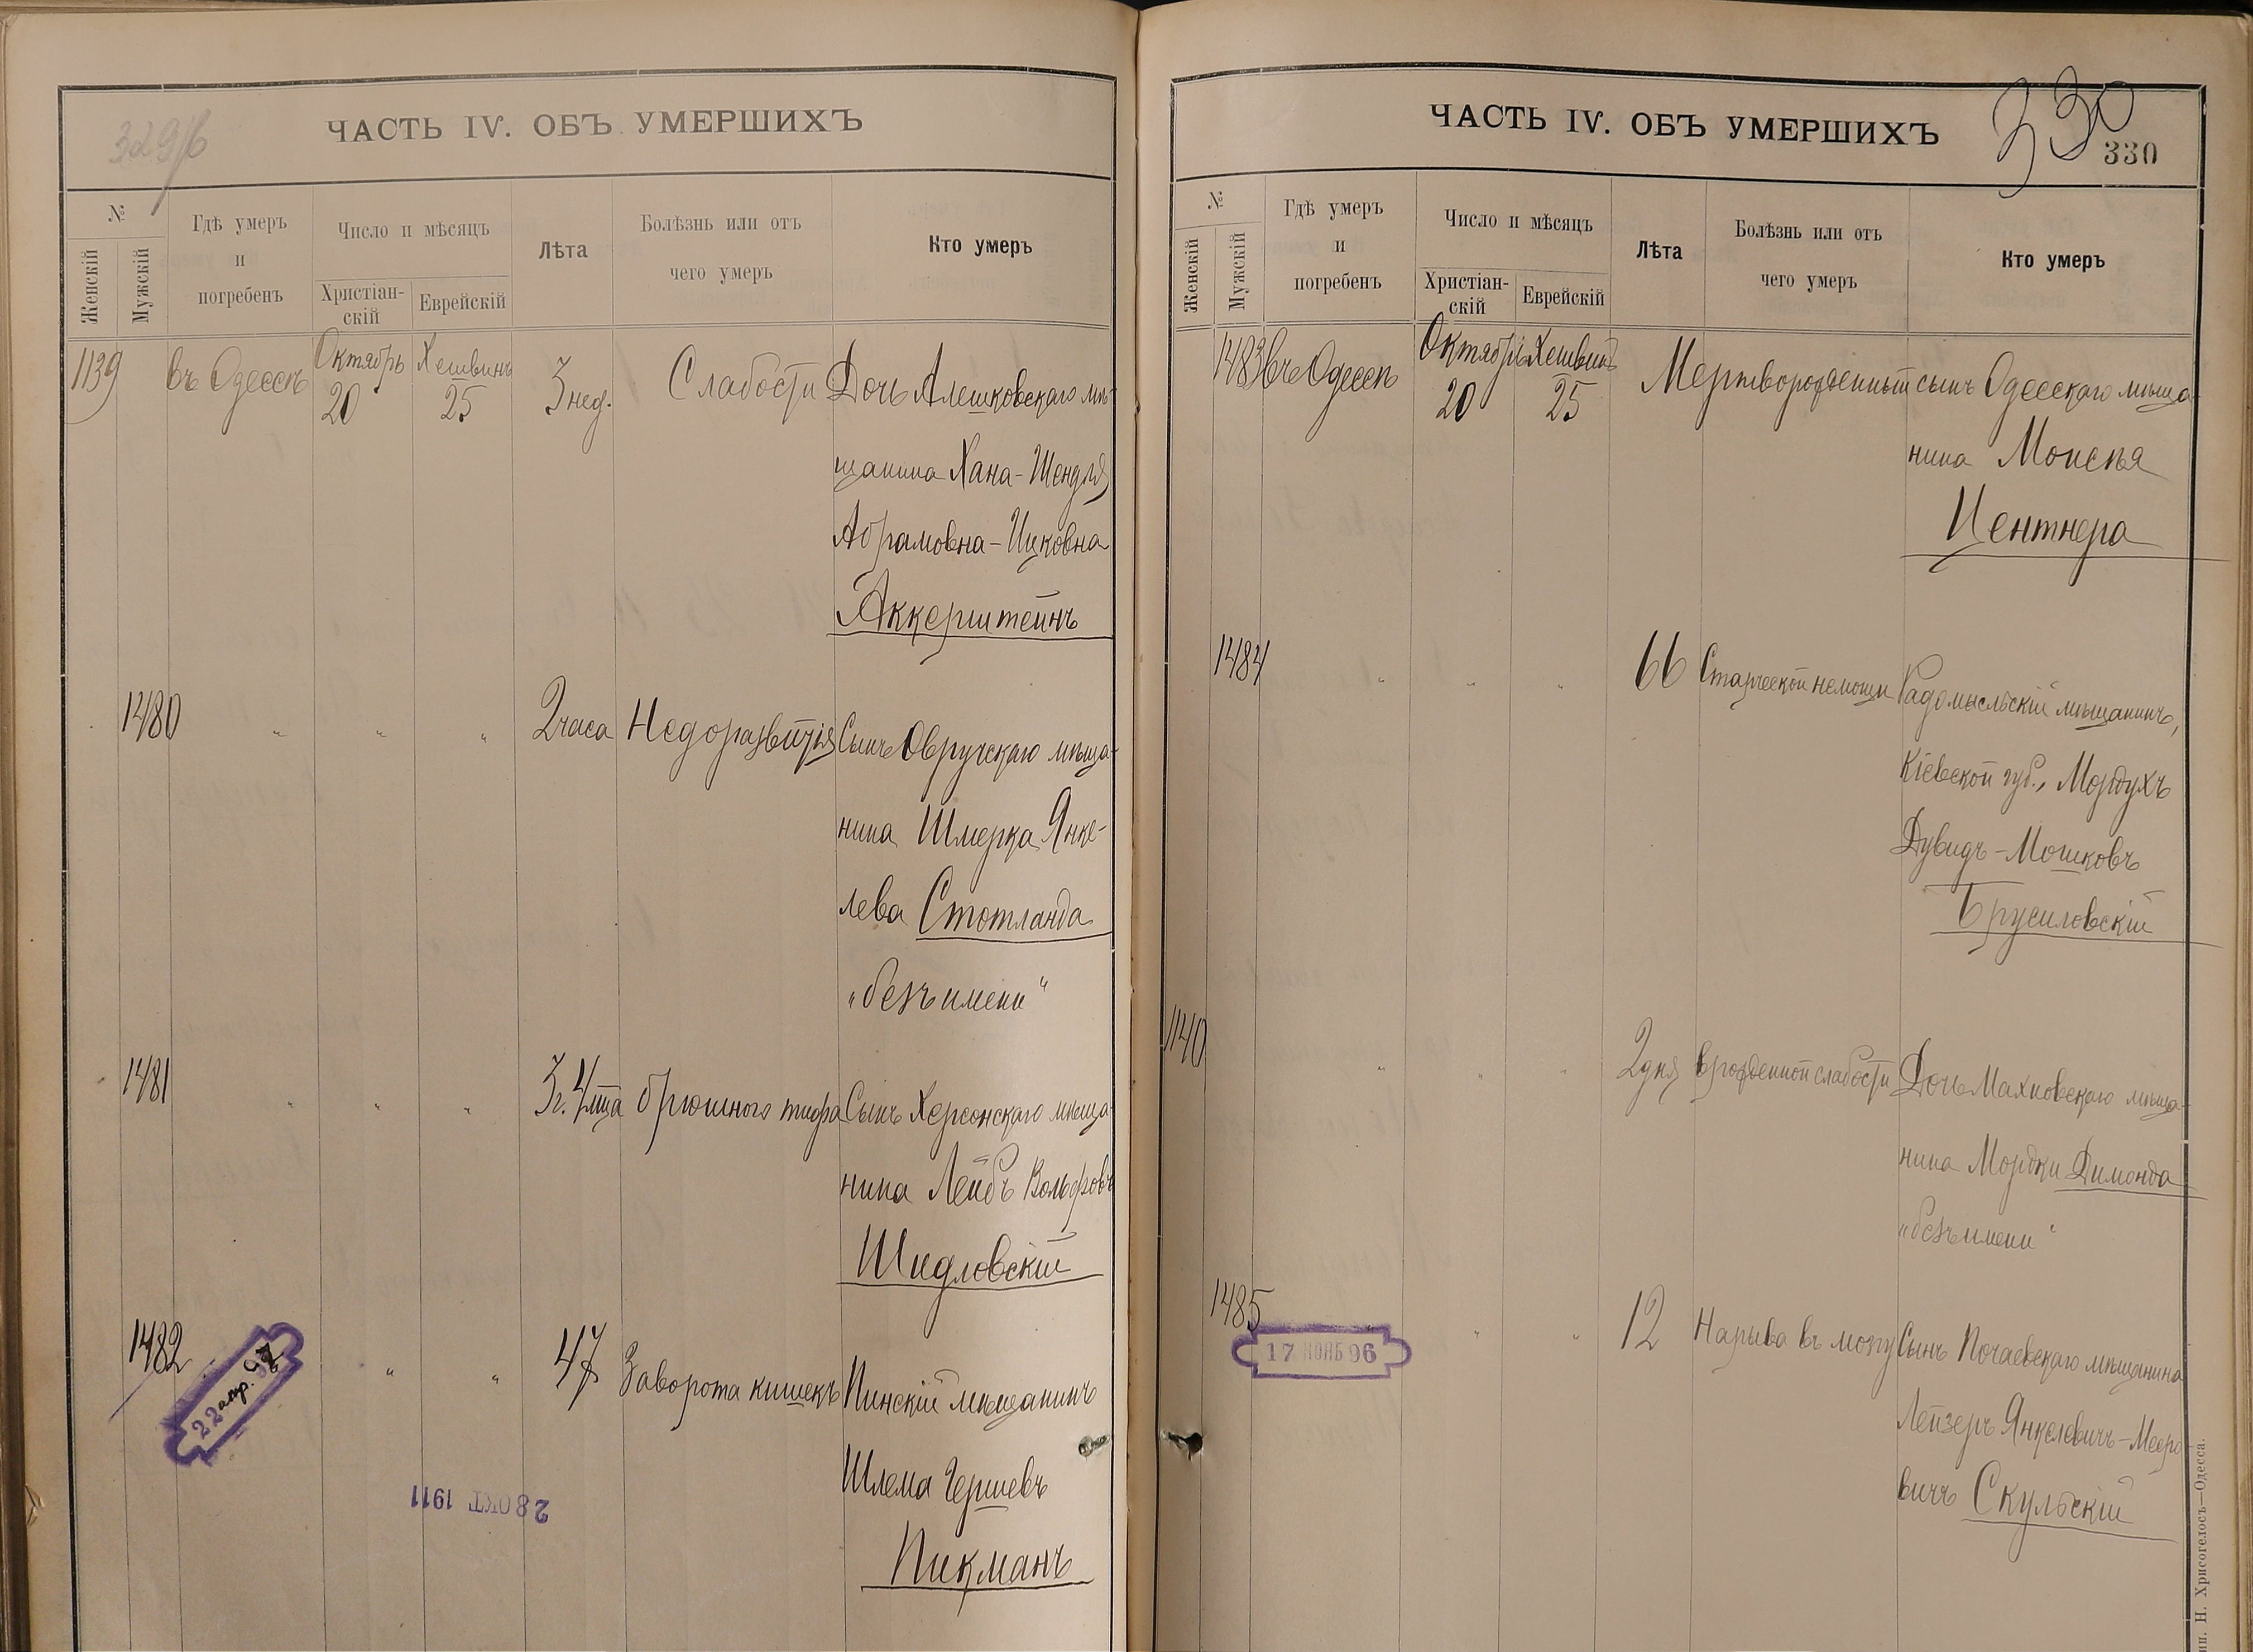 329/б
ЧАСТЬ IV. ОБЪ УМЕРШИХЪ
№
Женскій
Мужскій
Гдѣ умеръ
и
погребенъ
Число и мѣсяцъ
Христіан-
скій
Еврейскій
Лѣта
Болѣзнь или отъ
чего умеръ
Кто умеръ
1139 въ Одессѣ Октябрь 20 Хешвинъ 25 3 нед. Слабости Дочь Алешковскаго мѣ-
щанина Хана-Шендля
Абрамовна-Ицковна
Аккерштейнъ
1480 " " " 2 часа Недоразвитія Сынъ Овручскаго мѣща-
нина Шмерка Янке-
лева Стотланда
"безъ имени"
1481 " " " 3 г. 4 мца брюшного тифа Сынъ Херсонскаго мѣща-
нина Лейбъ Вольфовъ
Шидловскій
1482 " " 47 Заворота кишекъ Пинскій мѣщанинъ
Шлема Гершевъ
Пикманъ
22 апр. 97
28 ОКТ 1911
ЧАСТЬ IV. ОБЪ УМЕРШИХЪ
330
330
№
Женскій
Мужскій
Гдѣ умеръ
и
погребенъ
Число и мѣсяцъ
Христіан-
скій
Еврейскій
Лѣта
Болѣзнь или отъ
чего умеръ
Кто умеръ
1483 въ Одессѣ Октябрь 20 Хешвинъ 25 Мертворожденный сынъ Одесскаго мѣща-
нина Моисея
Центнера
1484 " " " 66 Старческой немощи Радомысльскій мѣщанинъ,
Кіевской губ., Мордухъ
Дувидъ-Мошковъ
Брусиловскій
1140 " " " 2 дня врожденной слабости Дочь Махновскаго мѣща-
нина Мордки Димонда
"безъ имени"
1485 " " " 12 Нарыва въ мозгу Сынъ Почаевскаго мѣщанина
Лейзеръ Янкелевичъ-Мееро-
вичъ Скульскій
17 НОЯБ 96
ип. Н. Хрисогелосъ—Одесса.